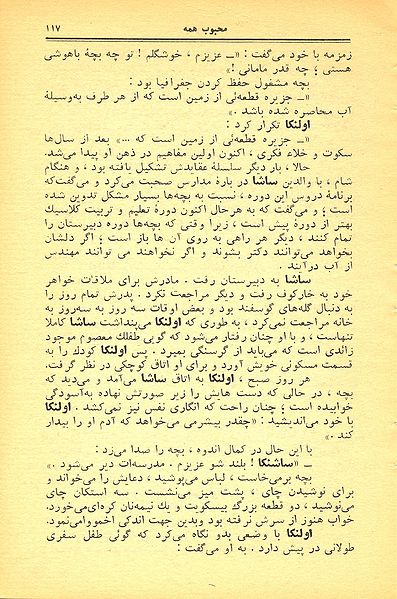 محبوب همه
۱۱۷
زمزمه با خود می‌گفت : «ــ عزیزم ، خوشگلم ! تو چه بچهٔ باهوشی
هستی ؛ چه قدر مامانی !»
بچه مشغول حفظ کردن جغرافیا بود :
«ــ جزیره قطعه‌ئی از زمین است که از هر طرف به‌وسیلهٔ
آب محاصره شده باشد .»
اولنکا تکرار کرد :
«ــ جزیره قطعه‌ئی از زمین است که ...» بعد از سال‌ها
سکوت و خلاء فکری ، اکنون اولین مفاهیم در ذهن او پیدا می‌شد.
حالا ، بار دیگر سلسلهٔ عقایدش تشکیل یافته بود ، و هنگام
شام ، با والدین ساشا در بارهٔ مدارس صحبت می‌کرد و می‌گفت‌که
برنامهٔ دروس این دوره ، نسبت به بچه‌ها بسیار مشکل تدوین شده
است ؛ و می‌گفت که به هرحال اکنون دورهٔ تعلیم و تربیت کلاسیك
بهتر از دورهٔ پیش است ، زیرا وقتی که بچه‌ها دوره دبیرستان را
تمام کنند ، دیگر هر راهی به روی آن ها باز است ؛ اگر دلشان
بخواهد می‌توانند دکتر بشوند و اگر نخواهند می توانند مهندس
از آب درآیند .
ساشا به دبیرستان رفت . مادرش برای ملاقات خواهر
خود به خارکوف رفت و دیگر مراجعت نکرد . پدرش تمام روز را
به دنبال گله‌های گوسفند بود و بعض اوقات سه روز به سه‌روز به
خانه مراجعت نمی‌کرد ، به طوری که اولنکا می‌پنداشت ساشا کاملا
تنهاست ، و با او چنان رفتار می‌شود که گویی طفلك معصوم موجود
زائدی است که می‌باید از گرسنگی بمیرد . پس اولنکا کودك را به
قسمت مسکونی خویش آورد و برای او اتاق کوچکی در نظر گرفت.
هر روز صبح ، اولنکا به اتاق ساشا می‌آمد و می‌دید که
بچه ، در حالی که دست هایش را زیر صورتش نهاده به‌آسودگی
خوابیده است ؛ چنان راحت که انگاری نفس نیز نمی‌کشد . اولنکا
با خود می‌اندیشید : «چقدر بیشرمی می‌خواهد که آدم او را بیدار
کند .»
با این حال در کمال اندوه ، بچه را صدا می‌زد :
ــ «ساشنکا ! بلند شو عزیزم . مدرسه‌ات دیر می‌شود .»
بچه برمی‌خاست ، لباس می‌پوشید ، دعایش را می‌خواند و
برای نوشیدن چای ، پشت میز می‌نشست . سه استکان چای
می‌نوشید ، دو قطعه بزرگ بیسکویت و یك نیمه‌نان کره‌ای‌می‌خورد.
خواب هنوز از سرش نرفته بود وبدین جهت اندکی اخموو‌امی‌نمود.
اولنکا با وضعی بدو نگاه می‌کرد که گوئی طفل سفری
طولانی در پیش دارد . به او می‌گفت :